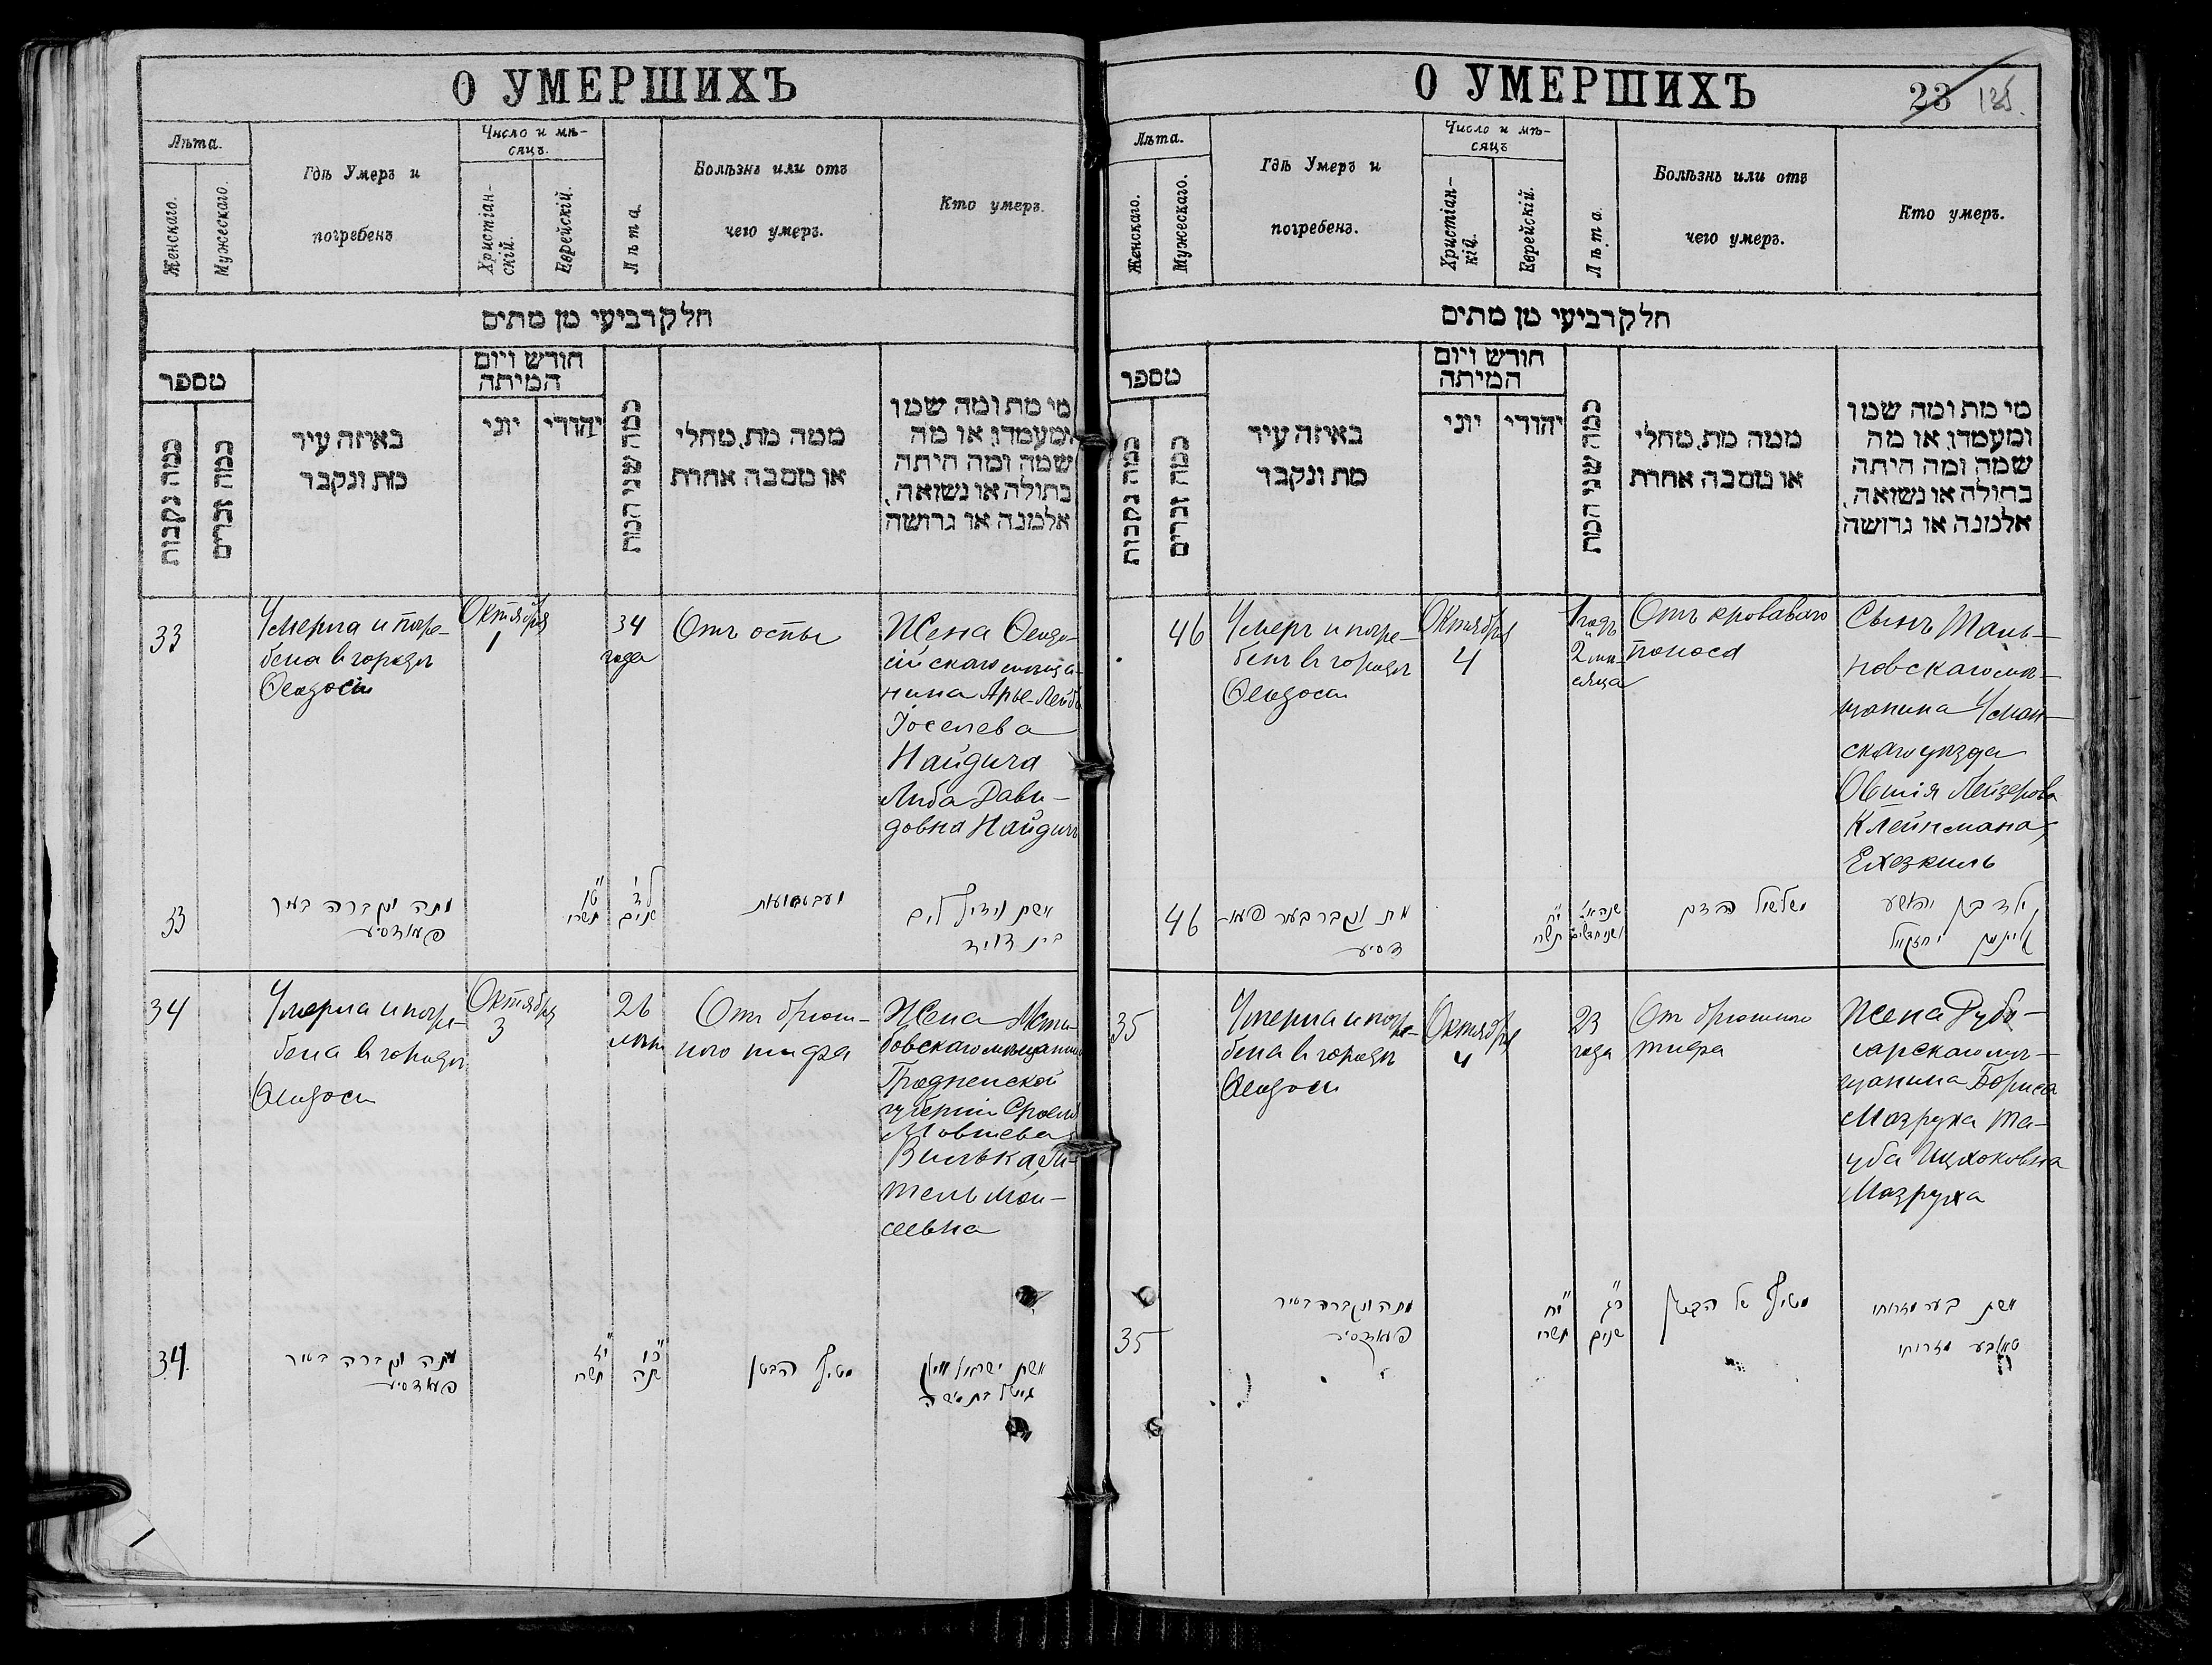 О УМЕРШИХЪ
Лѣта.
Женскаго.
Мужескаго.
Гдѣ Умеръ и
погребенъ
Число и мѣ-
сяцъ.
Христіан-
скій.
Еврейскій.
Лѣта.
Болѣзнь или отъ
чего умеръ.
Кто умеръ.
חלק רביעי מן מתים
מספר
כמה נקבות
כמה זכרים
באיזה עיר
מת ונקבר
חודש ויום
המיתה
יוני
יהודי
כמה שני המת
ממה מת, מחלי
או מסבה אחרת
מי מת ומה שמו
ומעמדו, או מה
שמה ומה היתה
בתולה או נשואה,
אלמנה או גרושה
33
Умерла и погре-
бена въ городѣ
Ѳеодосіи
Октября
1
34
года
Отъ оспы
Жена Ѳеодо-
сійскаго мѣща-
нина Арье-Лейба
Іоселева
Найдича
Либа Дави-
довна Найдичъ
33
מתה ונקברה בעיר
פעאדסיע
ט"ו
תשרי
ל"ד
שנים
אשת
בית דוד
34
Умерла и погре-
бена въ городѣ
Ѳеодосіи
Октября
3
26
лѣтъ
Отъ брюш-
ного тифа
Жена
бовскаго мѣщанина
Гродненской
губерніи Сроеля
Мовшева
Вилька,
тель Мои-
сеевна
34.
מתה ונקברה בעיר
פעאדסיע
י"ז
תשרי
כ"ו
שנה
מטיף הבטן
אשת ישראל ווילק
גיטל בת משה
О УМЕРШИХЪ
23
125.
Лѣта.
Женскаго.
Мужескаго.
Гдѣ Умеръ и
погребенъ.
Число и мѣ-
сяцъ
Христіан-
кій.
Еврейскій.
Лѣта.
Болѣзнь или отъ
чего умеръ.
Кто умеръ.
חלק רביעי מן מתים
מספר
כמה נקבות
כמה זכרים
באיזה עיר
מת ונקבר
חודש ויום
המיתה
יוני
יהודי
כמה שני המת
ממה מת, מחלי
או מסבה אחרת
מי מת ומה שמו
ומעמדו, או מה
שמה ומה היתה
בתולה או נשואה,
אלמנה או גרושה
46
Умеръ и погре-
бенъ въ городѣ
Ѳеодосіи
Октября
4
1 годъ
и
2 мѣ-
сяца
Отъ кроваваго
поноса
Сынъ Таль-
новскаго мѣ-
щанина Уман-
скаго уѣзда
Овшія Лейзерова
Клейнмана,
Ехезкиль
46
מת ונקבר בעיר פעא-
דסיע
י"ח
תשרי
שנה א'
ושני חדשים
משלשול הדם
ילד בן יהושע
קליינמן יחזקאל
35
Умерла и погре-
бена въ городѣ
Ѳеодосіи
Октября
4
23
года
Отъ брюшного
тифа
Жена Дубо-
сарскаго мѣ-
щанина Бориса
Мазруха Та-
уба Ицхоковна
Мазруха
35
מתה ונקברה בעיר
פעאדסיע
י"ח
תשרי
כ"ג
שנים
מטיף של הבטן
אשת בער מזרוחי
טאובע מזרוחי